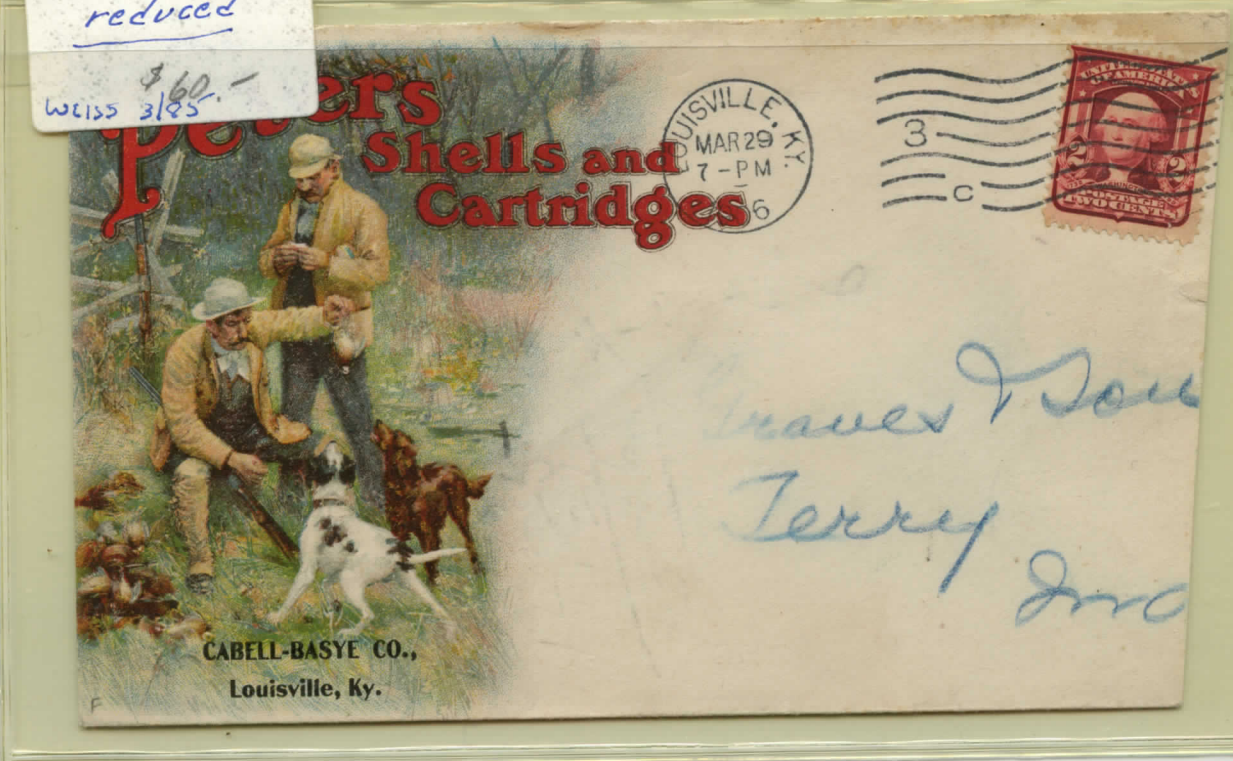 reduced
$60.-
Weiss 3/85
Peters
Shells and
Cartridges
LOUISVILLE, KY.
MAR 29
7-PM
6
3
C
2 2
TWO CENTS
& Son
Terry
Ind
CABELL-BASYE CO.,
Louisville, Ky.
F